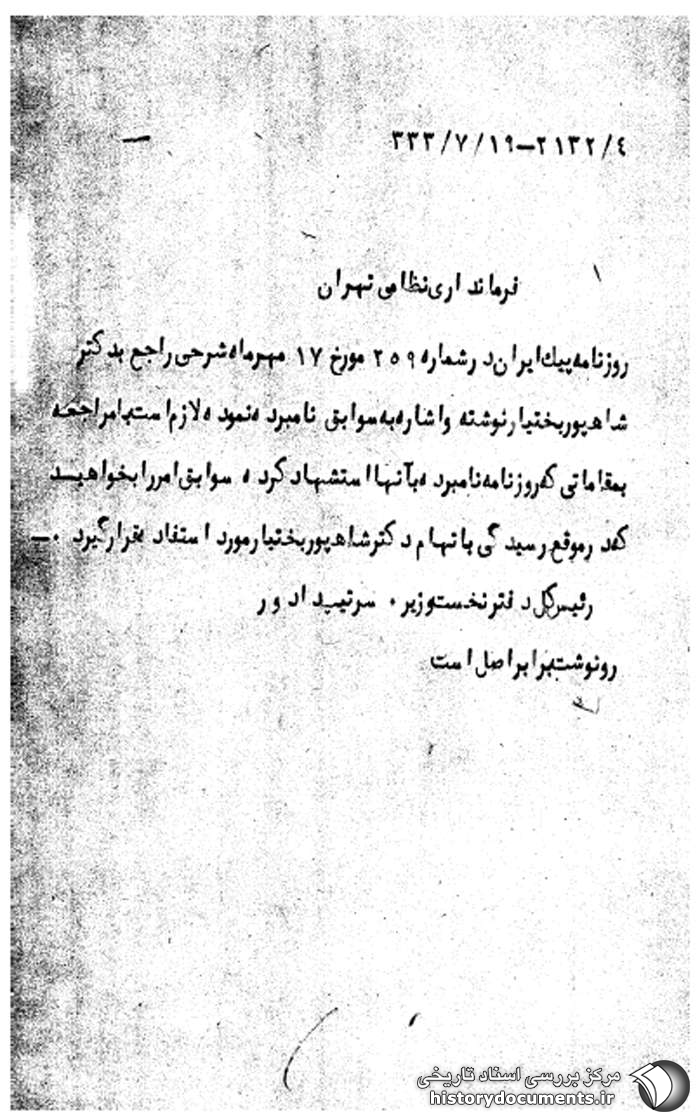 ۲۱۳۲/۴-۳۳۳/۷/۱۹
فرمانداری نظامی تهران
روزنامه پیك ایران در شماره ۲۵۹ مورخ ۱۷ مهرماه شرحی راجع بدکتر
شاهپور بختیار نوشته و اشاره به سوابق نامبرده نموده لازم است با مراجعه
بمقاماتی که روزنامه نامبرده بآنها استشهاد کرده سوابق امر را بخواهید
که در موقع رسیدگی باتهام دکتر شاهپور بختیار مورد استفاده قرار گیرد ۰ـ
رئیس کل دفتر نخست وزیر ۰ سرتیپ دادور
رونوشت برابر اصل است
مرکز بررسی اسناد تاریخی
historydocuments.ir